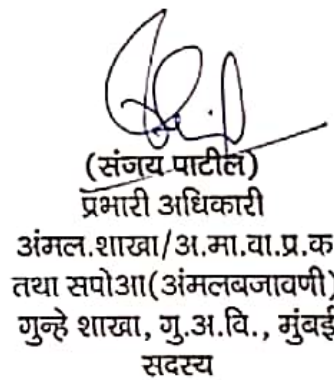 (संजय पाटील)
प्रभारी अधिकारी
अंमल.शाखा/अ.मा.वा.प्र.क
तथा सपोआ(अंमलबजावणी)
गुन्हे शाखा, गु.अ.वि., मुंबई
सदस्य